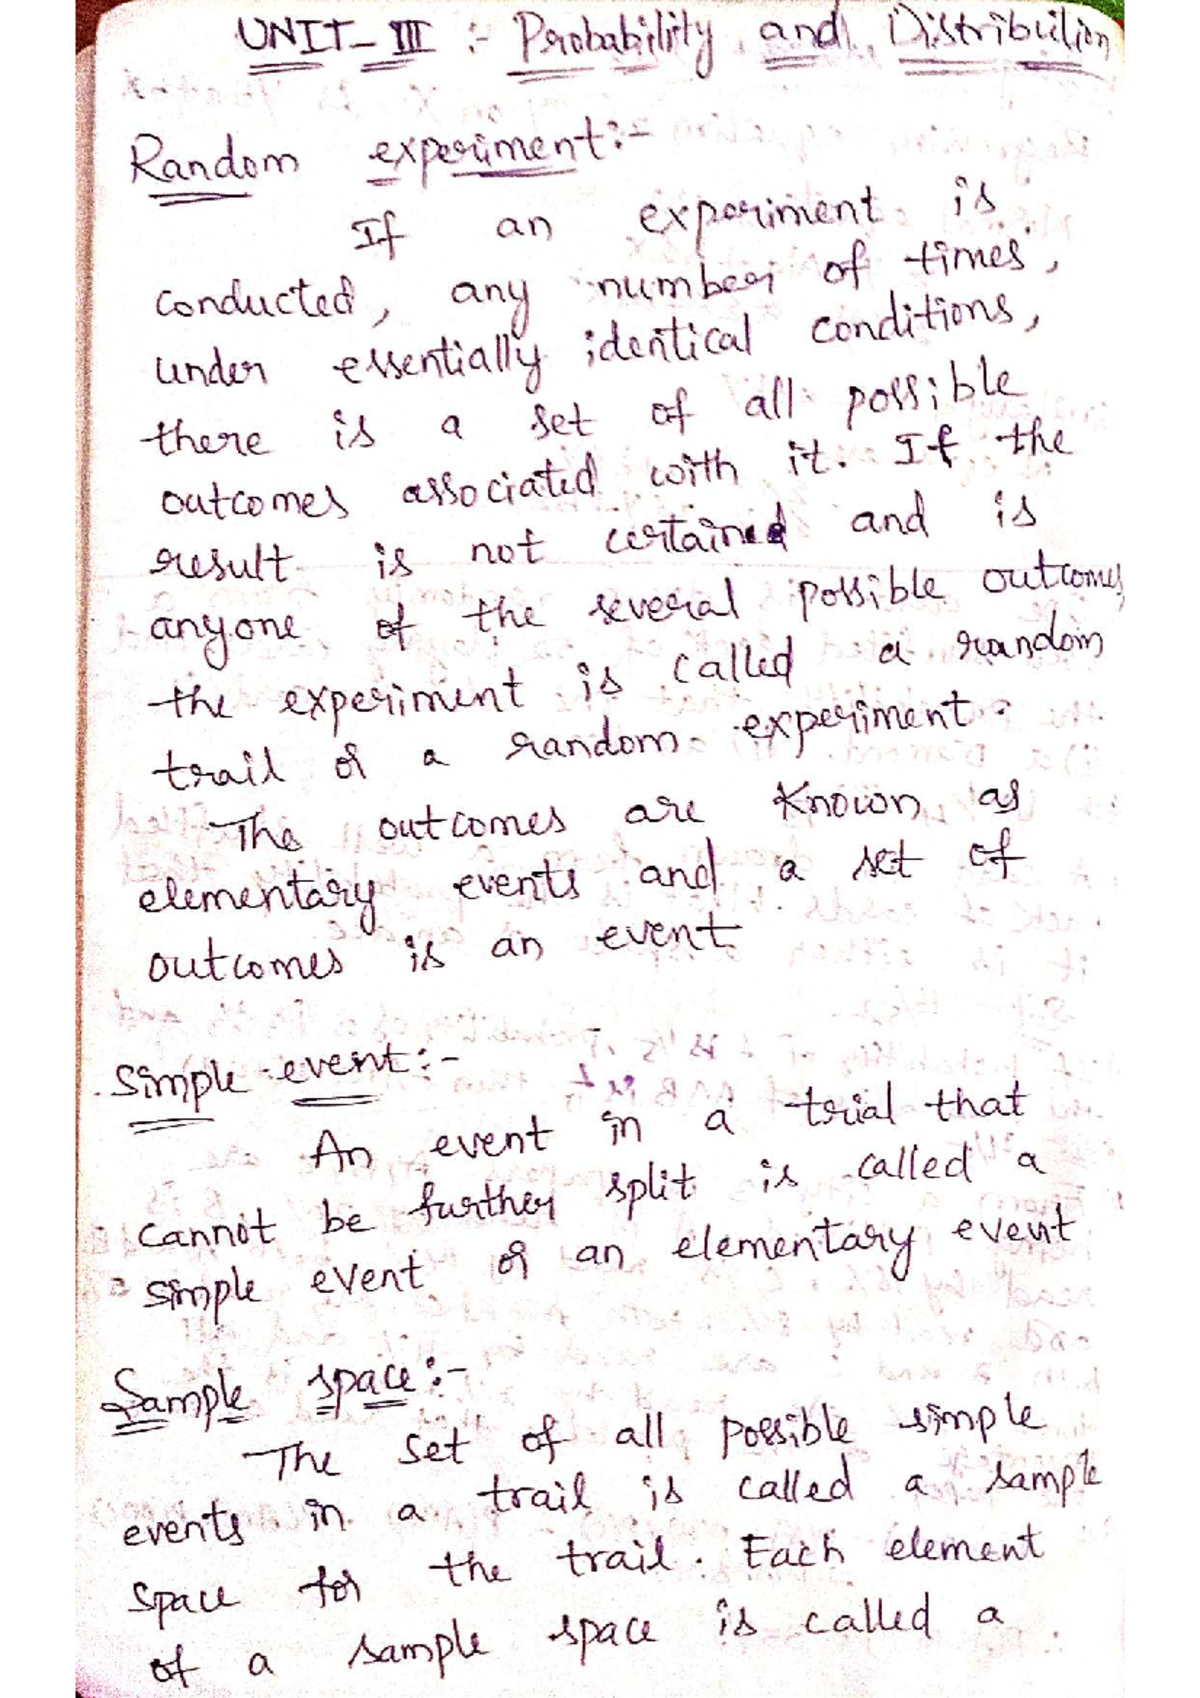 UNIT-III :- Probability and Distribution
Random experiment:-
If an experiment is
conducted, any number of times,
under essentially identical conditions,
there is a set of all possible
outcomes associated with it. If the
result is not certained and is
anyone of the several possible outcomes
the experiment is called a random
trail or a random experiment.
The outcomes are Known as
elementary events and a set of
outcomes is an event
Simple event:-
An event in a trial that
cannot be further split is called a
simple event or an elementary event
Sample space:-
The set of all possible simple
events in a trail is called a sample
space for the trail. Each element
of a sample space is called a